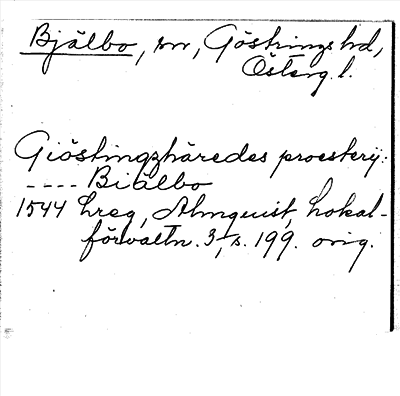 Bjälbo, sn, Göstrings hd,
Österg. l.
Giöstingzhäredes proesterij:
---- Biälbo
1544 hreg, Almquist, Lokal-
förvaltn. 3, s. 199. orig.